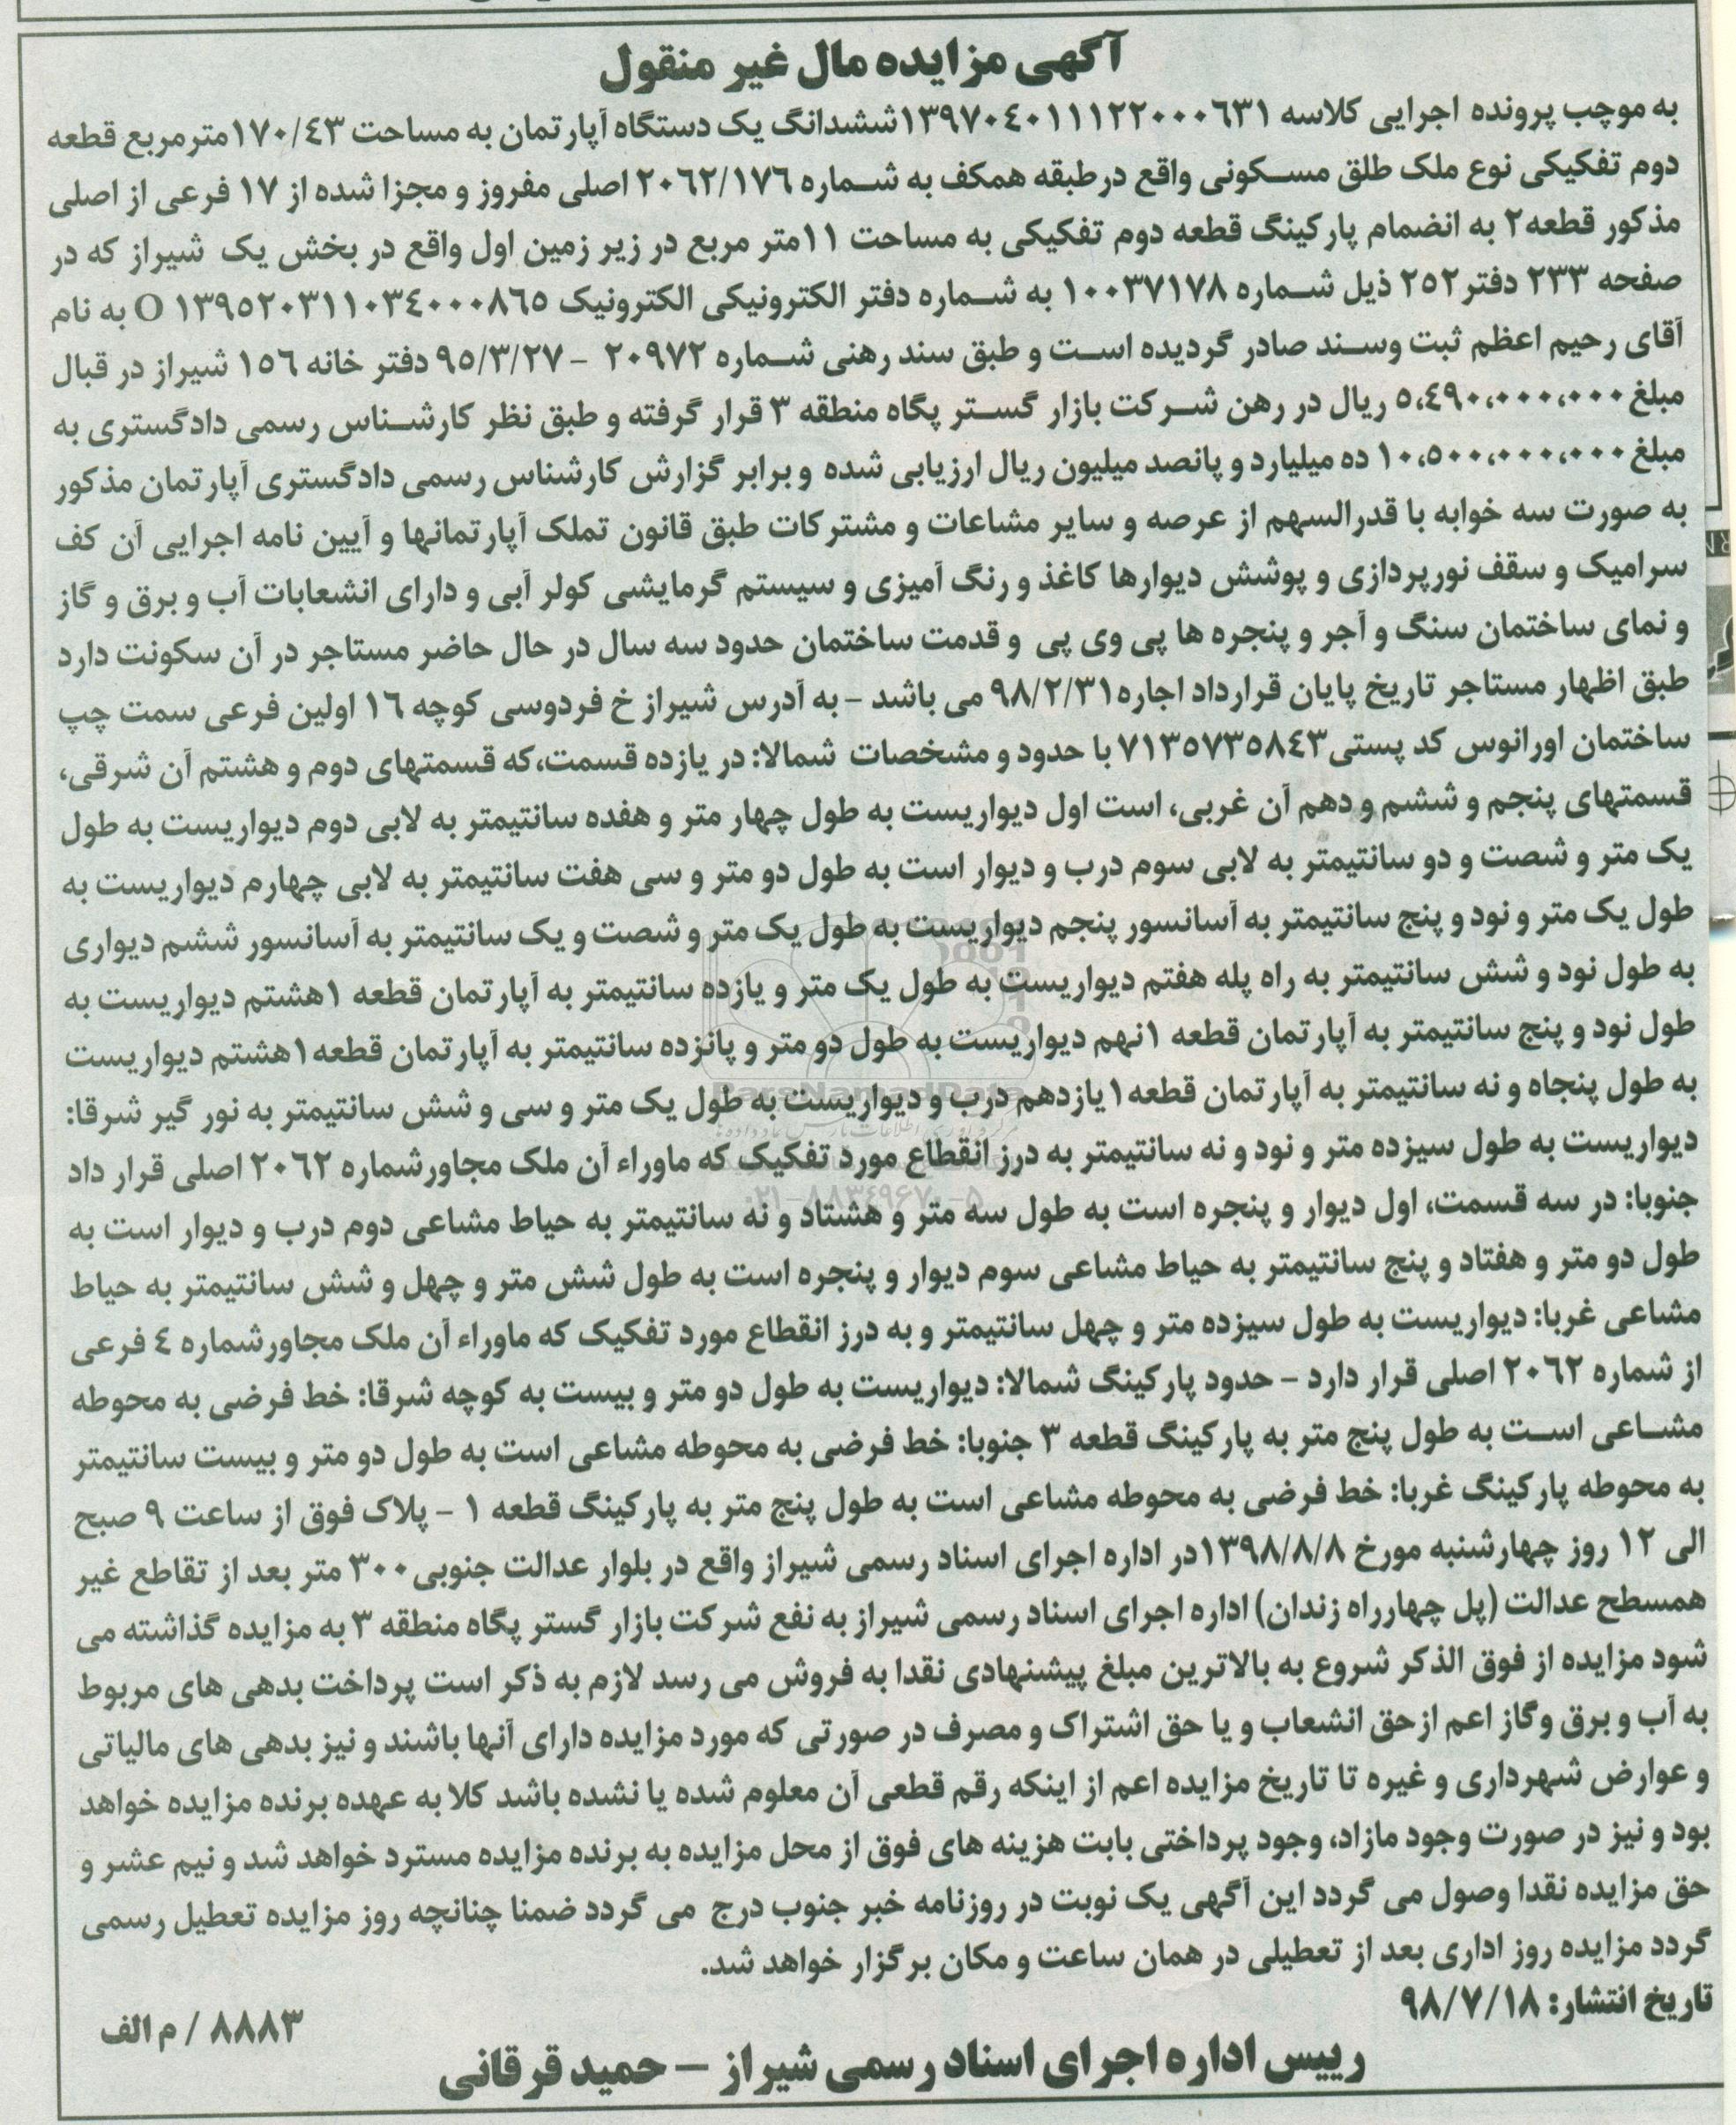 آگهی مزایده مال غیر منقول
به موجب پرونده اجرایی کلاسه ١٣٩٧٠٤٠١١١٢٢٠٠٠٦٣١ششدانگ یک دستگاه آپارتمان به مساحت ١٧٠/٤٣مترمربع قطعه
دوم تفکیکی نوع ملک طلق مسکونی واقع درطبقه همکف به شماره ٢٠٦٢/١٧٦ اصلی مفروز و مجزا شده از ١٧ فرعی از اصلی
مذکور قطعه٢ به انضمام پارکینگ قطعه دوم تفکیکی به مساحت ١١متر مربع در زیر زمین اول واقع در بخش یک شیراز که در
صفحه ٢٣٣ دفتر٢٥٢ ذیل شماره ١٠٠٣٧١٧٨ به شماره دفتر الکترونیکی الکترونیک ١٣٩٥٢٠٣١١٠٣٤٠٠٠٨٦٥ O به نام
آقای رحیم اعظم ثبت وسند صادر گردیده است و طبق سند رهنی شماره ٢٠٩٧٢ - ٩٥/٣/٢٧ دفتر خانه ١٥٦ شیراز در قبال
مبلغ ٥،٤٩٠،٠٠٠،٠٠٠ ریال در رهن شرکت بازار گستر پگاه منطقه ٣ قرار گرفته و طبق نظر کارشناس رسمی دادگستری به
مبلغ ١٠،٥٠٠،٠٠٠،٠٠٠ ده میلیارد و پانصد میلیون ریال ارزیابی شده و برابر گزارش کارشناس رسمی دادگستری آپارتمان مذکور
به صورت سه خوابه با قدرالسهم از عرصه و سایر مشاعات و مشترکات طبق قانون تملک آپارتمانها و آیین نامه اجرایی آن کف
سرامیک و سقف نورپردازی و پوشش دیوارها کاغذ و رنگ آمیزی و سیستم گرمایشی کولر آبی و دارای انشعابات آب و برق و گاز
و نمای ساختمان سنگ و آجر و پنجره ها پی وی پی و قدمت ساختمان حدود سه سال در حال حاضر مستاجر در آن سکونت دارد
طبق اظهار مستاجر تاریخ پایان قرارداد اجاره٩٨/٢/٣١ می باشد - به آدرس شیراز خ فردوسی کوچه ١٦ اولین فرعی سمت چپ
ساختمان اورانوس کد پستی٧١٣٥٧٣٥٨٤٣ با حدود و مشخصات شمالا: در یازده قسمت،که قسمتهای دوم و هشتم آن شرقی،
قسمتهای پنجم و ششم و دهم آن غربی، است اول دیواریست به طول چهار متر و هفده سانتیمتر به لابی دوم دیواریست به طول
یک متر و شصت و دو سانتیمتر به لابی سوم درب و دیوار است به طول دو متر و سی هفت سانتیمتر به لابی چهارم دیواریست به
طول یک متر و نود و پنج سانتیمتر به آسانسور پنجم دیواریست به طول یک متر و شصت و یک سانتیمتر به آسانسور ششم دیواری
به طول نود و شش سانتیمتر به راه پله هفتم دیواریست به طول یک متر و یازده سانتیمتر به آپارتمان قطعه ١هشتم دیواریست به
طول نود و پنج سانتیمتر به آپارتمان قطعه ١نهم دیواریست به طول دو متر و پانزده سانتیمتر به آپارتمان قطعه١هشتم دیواریست
به طول پنجاه و نه سانتیمتر به آپارتمان قطعه١یازدهم درب و دیواریست به طول یک متر و سی و شش سانتیمتر به نور گیر شرقا:
دیواریست به طول سیزده متر و نود و نه سانتیمتر به درز انقطاع مورد تفکیک که ماوراء آن ملک مجاورشماره ٢٠٦٢ اصلی قرار داد
جنوبا: در سه قسمت، اول دیوار و پنجره است به طول سه متر و هشتاد و نه سانتیمتر به حیاط مشاعی دوم درب و دیوار است به
طول دو متر و هفتاد و پنج سانتیمتر به حیاط مشاعی سوم دیوار و پنجره است به طول شش متر و چهل و شش سانتیمتر به حیاط
مشاعی غربا: دیواریست به طول سیزده متر و چهل سانتیمتر و به درز انقطاع مورد تفکیک که ماوراء آن ملک مجاورشماره ٤ فرعی
از شماره ٢٠٦٢ اصلی قرار دارد - حدود پارکینگ شمالا: دیواریست به طول دو متر و بیست به کوچه شرقا: خط فرضی به محوطه
مشاعی است به طول پنج متر به پارکینگ قطعه ٣ جنوبا: خط فرضی به محوطه مشاعی است به طول دو متر و بیست سانتیمتر
به محوطه پارکینگ غربا: خط فرضی به محوطه مشاعی است به طول پنج متر به پارکینگ قطعه ١ - پلاک فوق از ساعت ٩ صبح
الی ١٢ روز چهارشنبه مورخ ١٣٩٨/٨/٨در اداره اجرای اسناد رسمی شیراز واقع در بلوار عدالت جنوبی٣٠٠ متر بعد از تقاطع غیر
همسطح عدالت (پل چهارراه زندان) اداره اجرای اسناد رسمی شیراز به نفع شرکت بازار گستر پگاه منطقه ٣ به مزایده گذاشته می
شود مزایده از فوق الذکر شروع به بالاترین مبلغ پیشنهادی نقدا به فروش می رسد لازم به ذکر است پرداخت بدهی های مربوط
به آب و برق وگاز اعم ازحق انشعاب و یا حق اشتراک و مصرف در صورتی که مورد مزایده دارای آنها باشند و نیز بدهی های مالیاتی
و عوارض شهرداری و غیره تا تاریخ مزایده اعم از اینکه رقم قطعی آن معلوم شده یا نشده باشد کلا به عهده برنده مزایده خواهد
بود و نیز در صورت وجود مازاد، وجود پرداختی بابت هزینه های فوق از محل مزایده به برنده مزایده مسترد خواهد شد و نیم عشر و
حق مزایده نقدا وصول می گردد این آگهی یک نوبت در روزنامه خبر جنوب درج می گردد ضمنا چنانچه روز مزایده تعطیل رسمی
گردد مزایده روز اداری بعد از تعطیلی در همان ساعت و مکان برگزار خواهد شد.
تاریخ انتشار: ٩٨/٧/١٨
٨٨٨٣ / م الف
رییس اداره اجرای اسناد رسمی شیراز – حمید قرقانی
ParsNamadData
۰۲۱-۸۸۳۴۹۶۷۰-۵